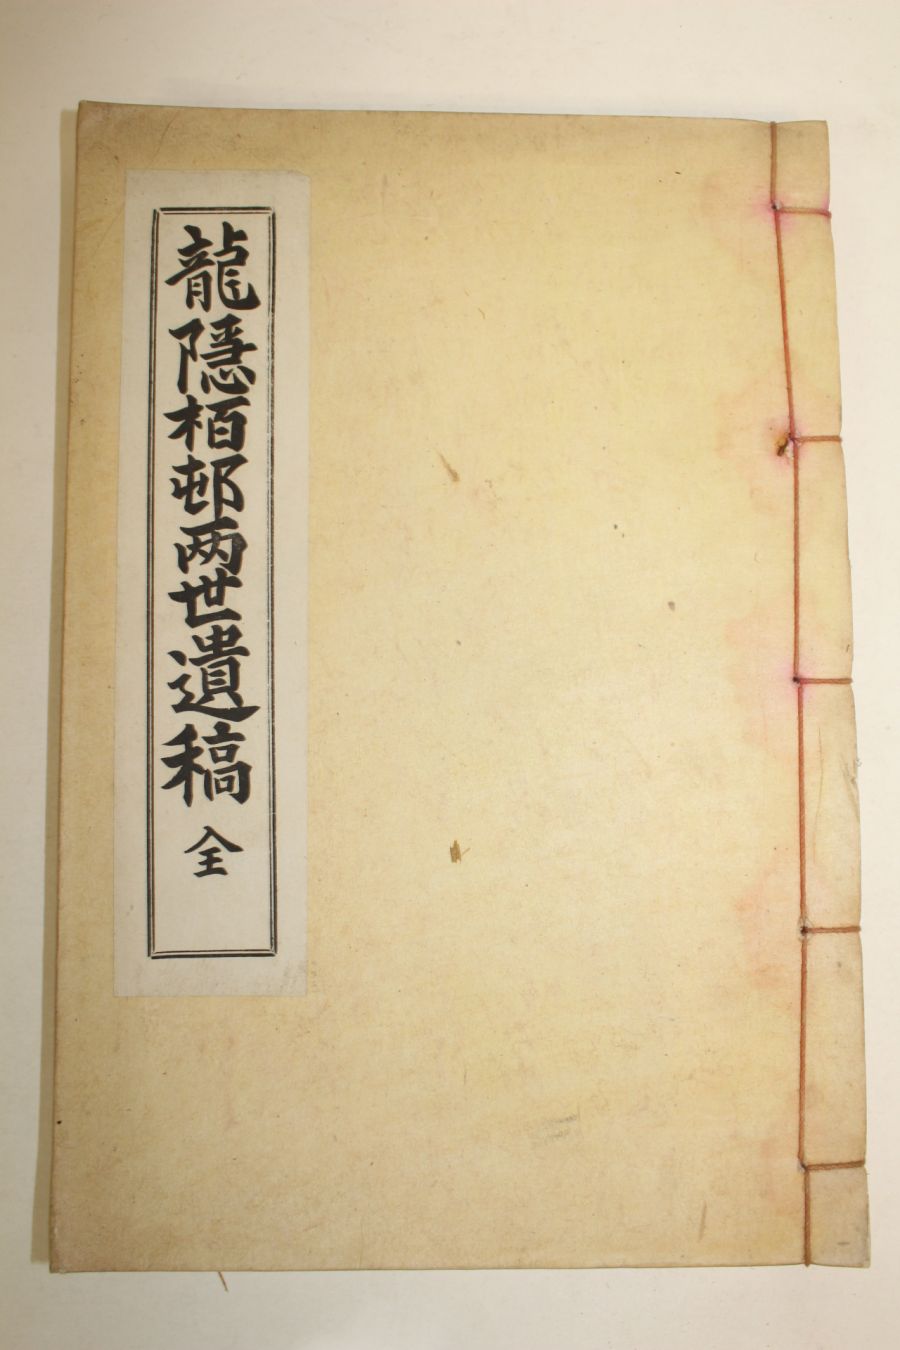 龍隱栢邨兩世遺稿 全